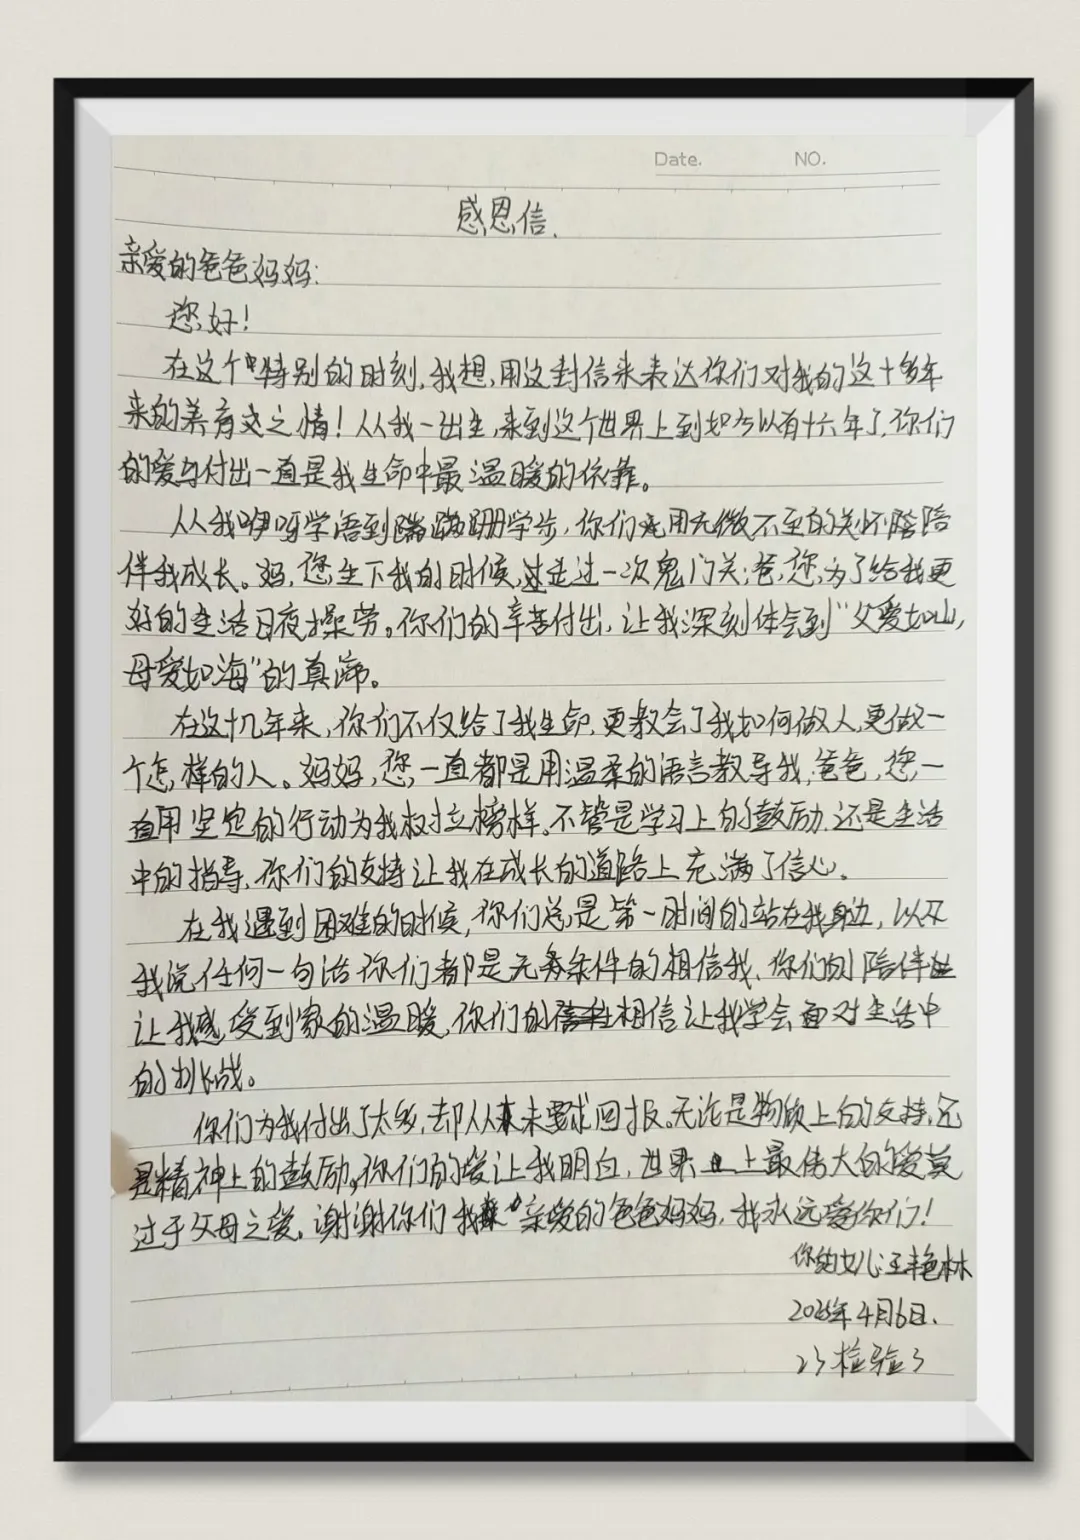 Date. NO.
感恩信.
亲爱的爸爸妈妈:
您好!
在这个特别的时刻,我想,用这封信来表达你们对我的这十多年
来的养育之情!从我一出生,来到这个世界上到如今以有十六年了,你们
的爱与付出一直是我生命中最温暖的依靠。
从我咿呀学语到蹒跚学步,你们用无微不至的关怀陪
伴我成长。妈,您生下我的时候,走过一次鬼门关;爸,您,为了给我更
好的生活日夜操劳。你们的辛苦付出,让我深刻体会到"父爱如山,
母爱如海"的真谛。
在这十几年来,你们不仅给了我生命,更教会了我如何做人,更做一
个怎样的人。妈妈,您一直都是用温柔的语言教导我,爸爸,您一
直用坚定的行动为我树立榜样。不管是学习上的鼓励,还是生活
中的指导,你们的支持让我在成长的道路上充满了信心。
在我遇到困难的时候,你们总是第一时间的站在我身边,以及
我说任何一句话你们都是无条件的相信我,你们的陪伴
让我感受到家的温暖,你们的相信让我学会面对生活中
的挑战。
你们为我付出了太多,却从未要求回报。无论是物质上的支持,还
是精神上的鼓励,你们的爱让我明白,世界上最伟大的爱莫
过于父母之爱。谢谢你们我亲爱的爸爸妈妈,我永远爱你们!
你的女儿:王艳林
2025年4月6日.
23检验3